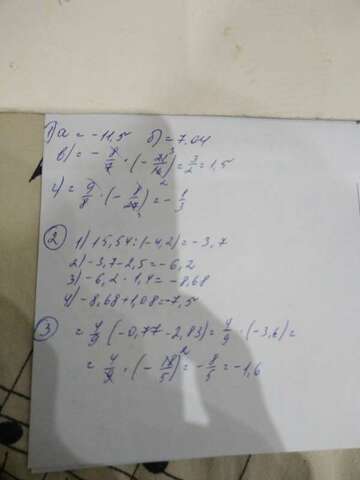 1) а = -11,5 б) = 7.04
в) = - 8/7 · (- 21³/16₂) = 3/2 = 1,5
г) = 9/8 · (- 8/27) = - 1/3
2 1) 15,54 : (-4,2) = -3,7
2) -3,7-2,5 = -6,2
3) -6,2 · 1,4 = -8,68
4) -8,68+1,08 = -7,5
3 = 4/9 (-0,77-2,83) = 4/9 · (-3,6) =
= 4/9 · (- 18/5)² = - 8/5 = -1,6